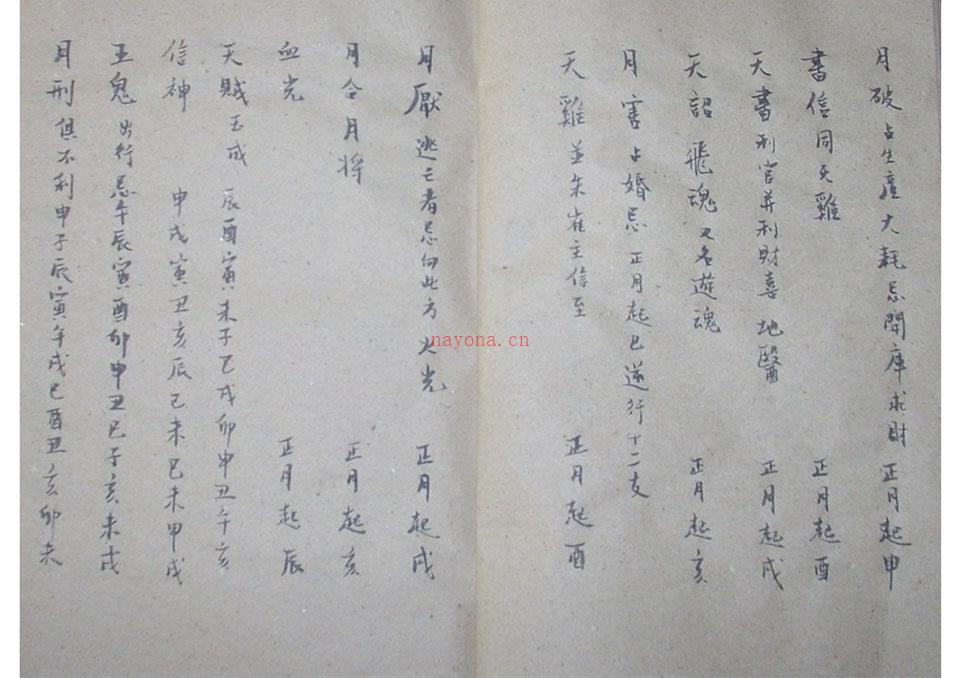 月破 占生產 大耗 忌開庫求財 正月起申
書信 同天雞 正月起酉
天書 利官并利財喜 地醫 正月起戌
天詔 飛魂 又名遊魂 正月起亥
月害 占婚忌 正月起巳逆行十二支
天雞 並朱雀主信至 正月起酉
月厭 逃亡者忌向此方 火光 正月起戌
月合 月將 正月起亥
血光 正月起辰
天賊 玉成 辰酉寅未子巳戌卯申丑午亥
信神 申戌寅丑亥辰巳未巳未申戌
王鬼 出行忌 午辰寅酉卯申丑巳子亥未戌
月刑 俱不利 申子辰寅午戌巳酉丑亥卯未
nayona.cn